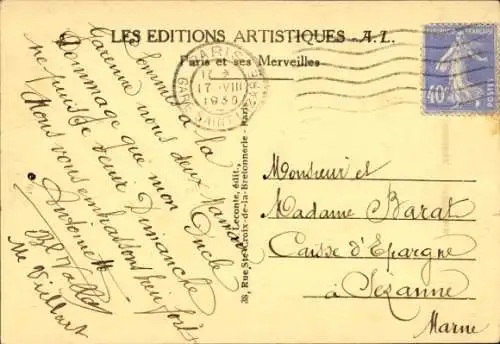 LES EDITIONS ARTISTIQUES - A.L.
Paris et ses Merveilles
PARIS
17 VIII
GARE SAINT-LAZARE
40c
Sommes à la
Garenne nous deux Mam
Dommage que mon Oncle
ne puisse venir Dimanche
Nous vous embrassons bien fort
Antoinette
Me Villard
Leconte, édit., 38, Rue Ste-Croix-de-la-Bretonnerie - Paris
Monsieur et
Madame Barat
Caisse d'Epargne
à Sézanne
Marne